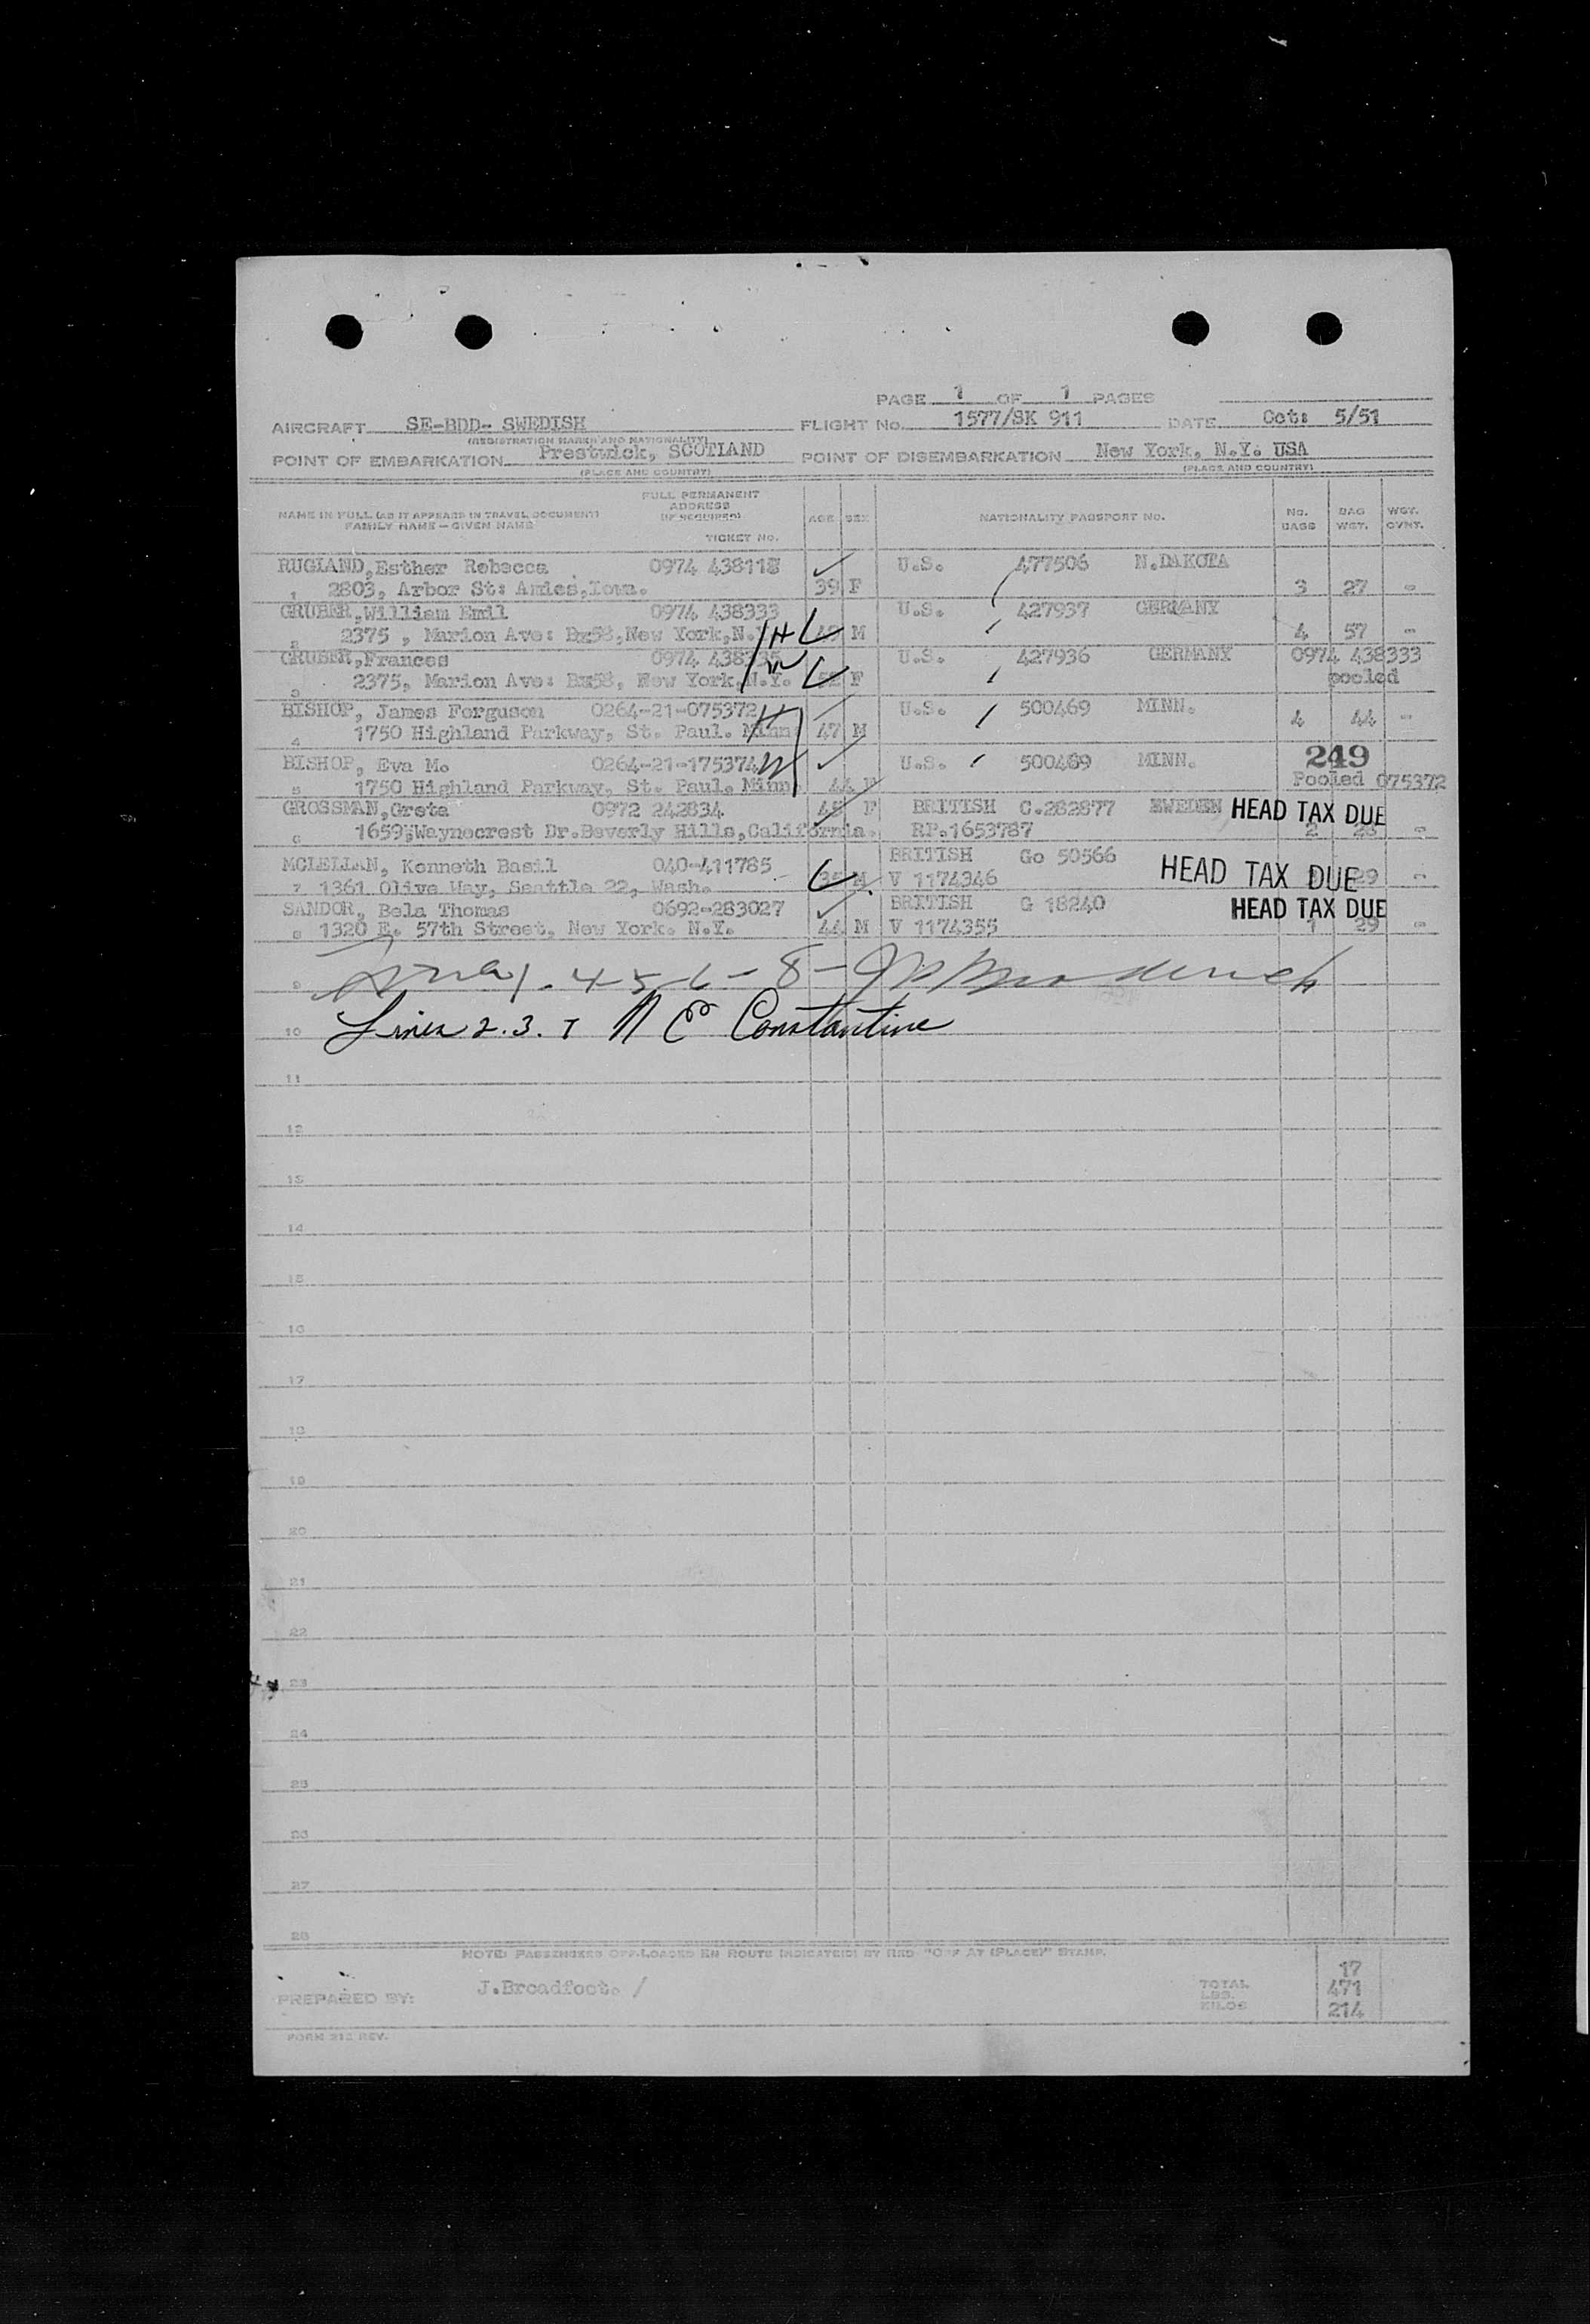 PAGE 1 OF 1 PAGES
AIRCRAFT SE-BDD- SWEDISH FLIGHT No. 1577/SK 911 DATE Oct: 5/51
(REGISTRATION MARKS AND NATIONALITY)
POINT OF EMBARKATION Prestwick, SCOTLAND POINT OF DISEMBARKATION New York, N.Y. USA
(PLACE AND COUNTRY) (PLACE AND COUNTRY)
NAME IN FULL (AS IT APPEARS IN TRAVEL DOCUMENT) FAMILY NAME — GIVEN NAME FULL PERMANENT ADDRESS (IF REQUIRED) TICKET No. AGE SEX NATIONALITY PASSPORT No. No. BAGS BAG WGT. WGT. OVHT.
RUGLAND, Esther Rebecca 0974 438118 U.S. 477506 N.DAKOTA
1 2803, Arbor St: Ames, Iowa. 39 F 3 27 -
GRUBER, William Emil 0974 438333 U.S. 427937 GERMANY
2 2375 , Marion Ave: Bx58, New York, N. H M 4 57 -
GRUBER, Frances 0974 438335 U.S. 427936 GERMANY 0974 438333
3 2375, Marion Ave: Bx58, New York, N.Y. W 52 F pooled
BISHOP, James Ferguson 0264-21-075372 H U.S. 500469 MINN.
4 1750 Highland Parkway, St. Paul. Minn 47 M 4 44 -
BISHOP, Eva M. 0264-21-175374 W U.S. 500489 MINN. 249
5 1750 Highland Parkway, St. Paul. Minn 44 F Pooled 075372
GROSSMAN, Greta 0972 242834 45 F BRITISH C.282877 SWEDEN HEAD TAX DUE
6 1659, Waynecrest Dr. Beverly Hills, California. RP.1653787 2 28 -
MCLELLAN, Kenneth Basil 040-411785 BRITISH Go 50566 HEAD TAX DUE
7 1361 Olive Way, Seattle 22, Wash. 35 M V 1174346 29 -
SANDOR, Bela Thomas 0692-283027 BRITISH G 18240 HEAD TAX DUE
8 1320 E. 57th Street, New York. N.Y. 44 M V 1174355 1 29 -
9 1-4-5-6-8-
10 Lines 2.3.7 N E Constantine
11
12
13
14
15
16
17
18
19
20
21
22
23
24
25
26
27
28
NOTE: PASSENGERS OFF-LOADED EN ROUTE INDICATED BY RED "OFF AT (PLACE)" STAMP.
PREPARED BY: J.Broadfoot. /
TOTAL 17
LBS. 471
KILOS 214
FORM 215 REV.